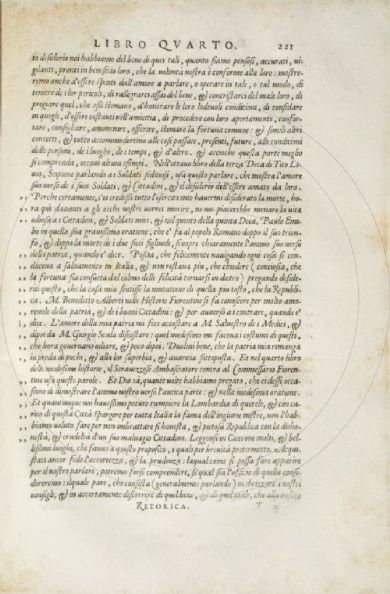 LIBRO QVARTO. 221
to disiderio noi habbiamo del bene di quei tali, quanto siamo pensosi, accurati, vi-
gilanti, pronti in beneficio loro, che la volontà nostra è conforme alla loro: mostre-
remo anche d'essere spinti dall'amore a parlare, o operare in tale, o tal modo, di
temere de i lor pericoli, di rallegrarci assai del bene, & contristarci del male loro, di
pregare quel, che essi stimano, d'honorare le loro lodevoli conditioni, di confidare
in quegli, d'essere costanti nell'amicitia, di procedere con loro apertamente, confor-
tare, consigliare, ammonire, essortare, stimare la fortuna comune: & simili altri
concetti, & tutto accommoderemo alle cose passate, presenti, future, alle conditioni
delle persone, de i luoghi, de i tempi, & d'altro. & accioche questa parte meglio
si comprenda, eccone alcuni essempi. Nell'ottavo libro della terza Deca de Tito Li-
vio, Scipione parlando a i Soldati seditiosi, usa questo parlare, che mostra l'amore
suo verso di i suoi Soldati, & Cittadini, & il desiderio dell'essere amato da loro.
,, Perche certamente, s'io credessi tutto l'esercito mio havermi desiderato la morte, ho-
,, ra quì davanti a gli occhi vostri vorrei morire, ne mi piacerebbe menare la vita
,, odiosa a i Cittadini, & Soldati miei. & nel quinto della quinta Deca, Paulo Emi-
lio in quella sua gravissima oratione, che e' fa al popolo Romano doppo il suo trion-
fo, & doppo la morte de i due suoi figliuoli, scuopre chiaramente l'animo suo verso
,, della patria, quando e' dice. Poscia, che felicemente navigando ogni cosa si con-
,, ducena a salvamento in Italia, & non restava piu, che chiedere (conciosia, che
,, la fortuna sia consueta dal colmo delle felicità tornarsi in dietro) pregando diside-
,, rai questo, che la casa mia sentisse la mutatione di quella piu tosto, che la Republi-
,, ca. M. Benedetto Alberti nelle Historie Fiorentine si fa conoscere per molto amo-
revole della patria, & di i buoni Cittadini: & per avverso a i contrari, quando e'
,, dice. L'amore della mia patria mi fece accostare a M. Salvestro de i Medici, &
,, dipoi da M. Giorgio Scala discostare: quel medesimo mi faceva i costumi di questi,
,, che hora governano odiare, & poco dipoi. Duolmi bene, che la patria mia rimanga
,, in preda di pochi, & alla lor superbia, & avaritia sottoposta. Et nel quarto libro
delle medesime historie, il Seravezzese Ambasciatore contra al Commessario Fioren-
,, tino usa queste parole. Et Dio sà, quante volte habbiamo pregato, che ci desse occa-
,, sione di dimostrare l'animo nostro verso l'antica parte: & nella medesima oratione.
,, Et quantunque noi havessimo potuto riempiere la Lombardia di querele, & con ca-
,, rico di questa Città spargere per tutta Italia la fama dell'ingiurie nostre, non l'hab-
,, biamo voluto fare per non imbrattare sì honesta, & pietosa Republica con la disho-
,, nestà, & crudeltà d'un suo malvagio Cittadino. Leggonsi in Cicerone molti, & bel-
lissimi luoghi, che fanno a questo proposito, i quali per brevità pretermetto. Acqui-
stasi ancor fede l'accortezza, & la prudenza: laqual come si possa fare apparire
per il nostro parlare, potremo forse comprendere, se qual sia l'offitio di quella consi-
dereremo: ilquale pare, che consista (generalmente parlando) in drizzare i nostri
consigli, & in accortamente discorrere di quel bene, & di quel male, che alla nostra
RETORICA. T iij